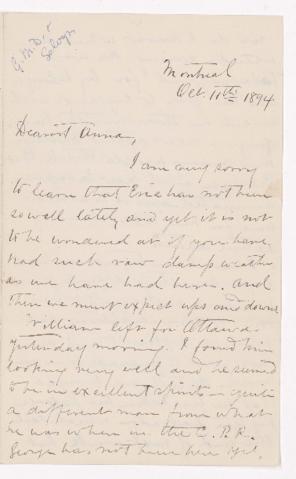 G. M. D.
Selwyn
Montreal
Oct. 11th 1894
Dearest Anna,
I am very sorry
to learn that Eric has not been
so well lately and yet it is not
to be wondered at if you have
had such raw damp weather
as we have had here. And
then we must expect ups and downs
William left for Ottawa
yesterday morning. I found him
looking very well and he seemed
to be in excellent spirits – quite
a different man from what
he was when in the C. P. R.
George has not been here yet.